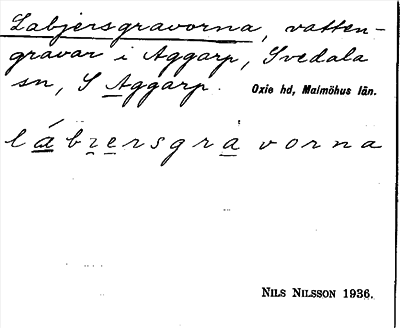 Labjersgravorna, vatten-
gravar i Aggarp, Svedala
sn, S Aggarp. Oxie hd, Malmöhus län.
lábɿersgrȧvorna
NILS NILSSON 1936.